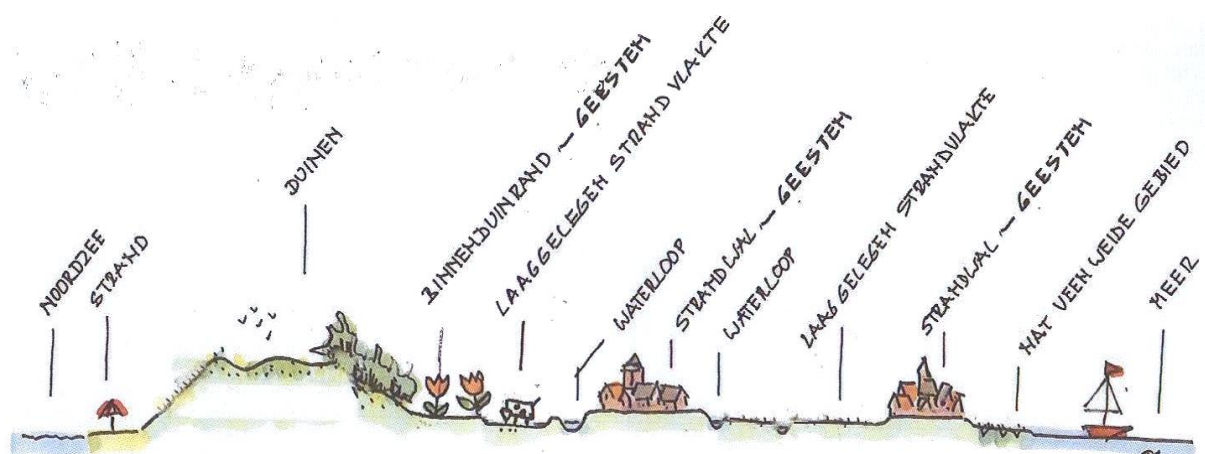 NOORDZEE
STRAND
DUINEN
BINNENDUINRAND — GEESTEN
LAAGGELEGEN STRAND VLAKTE
WATERLOOP
STRANDWAL — GEESTEN
WATERLOOP
LAAGGELEGEN STRANDVLAKTE
STRANDWAL — GEESTEN
NAT VEEN WEIDE GEBIED
MEER